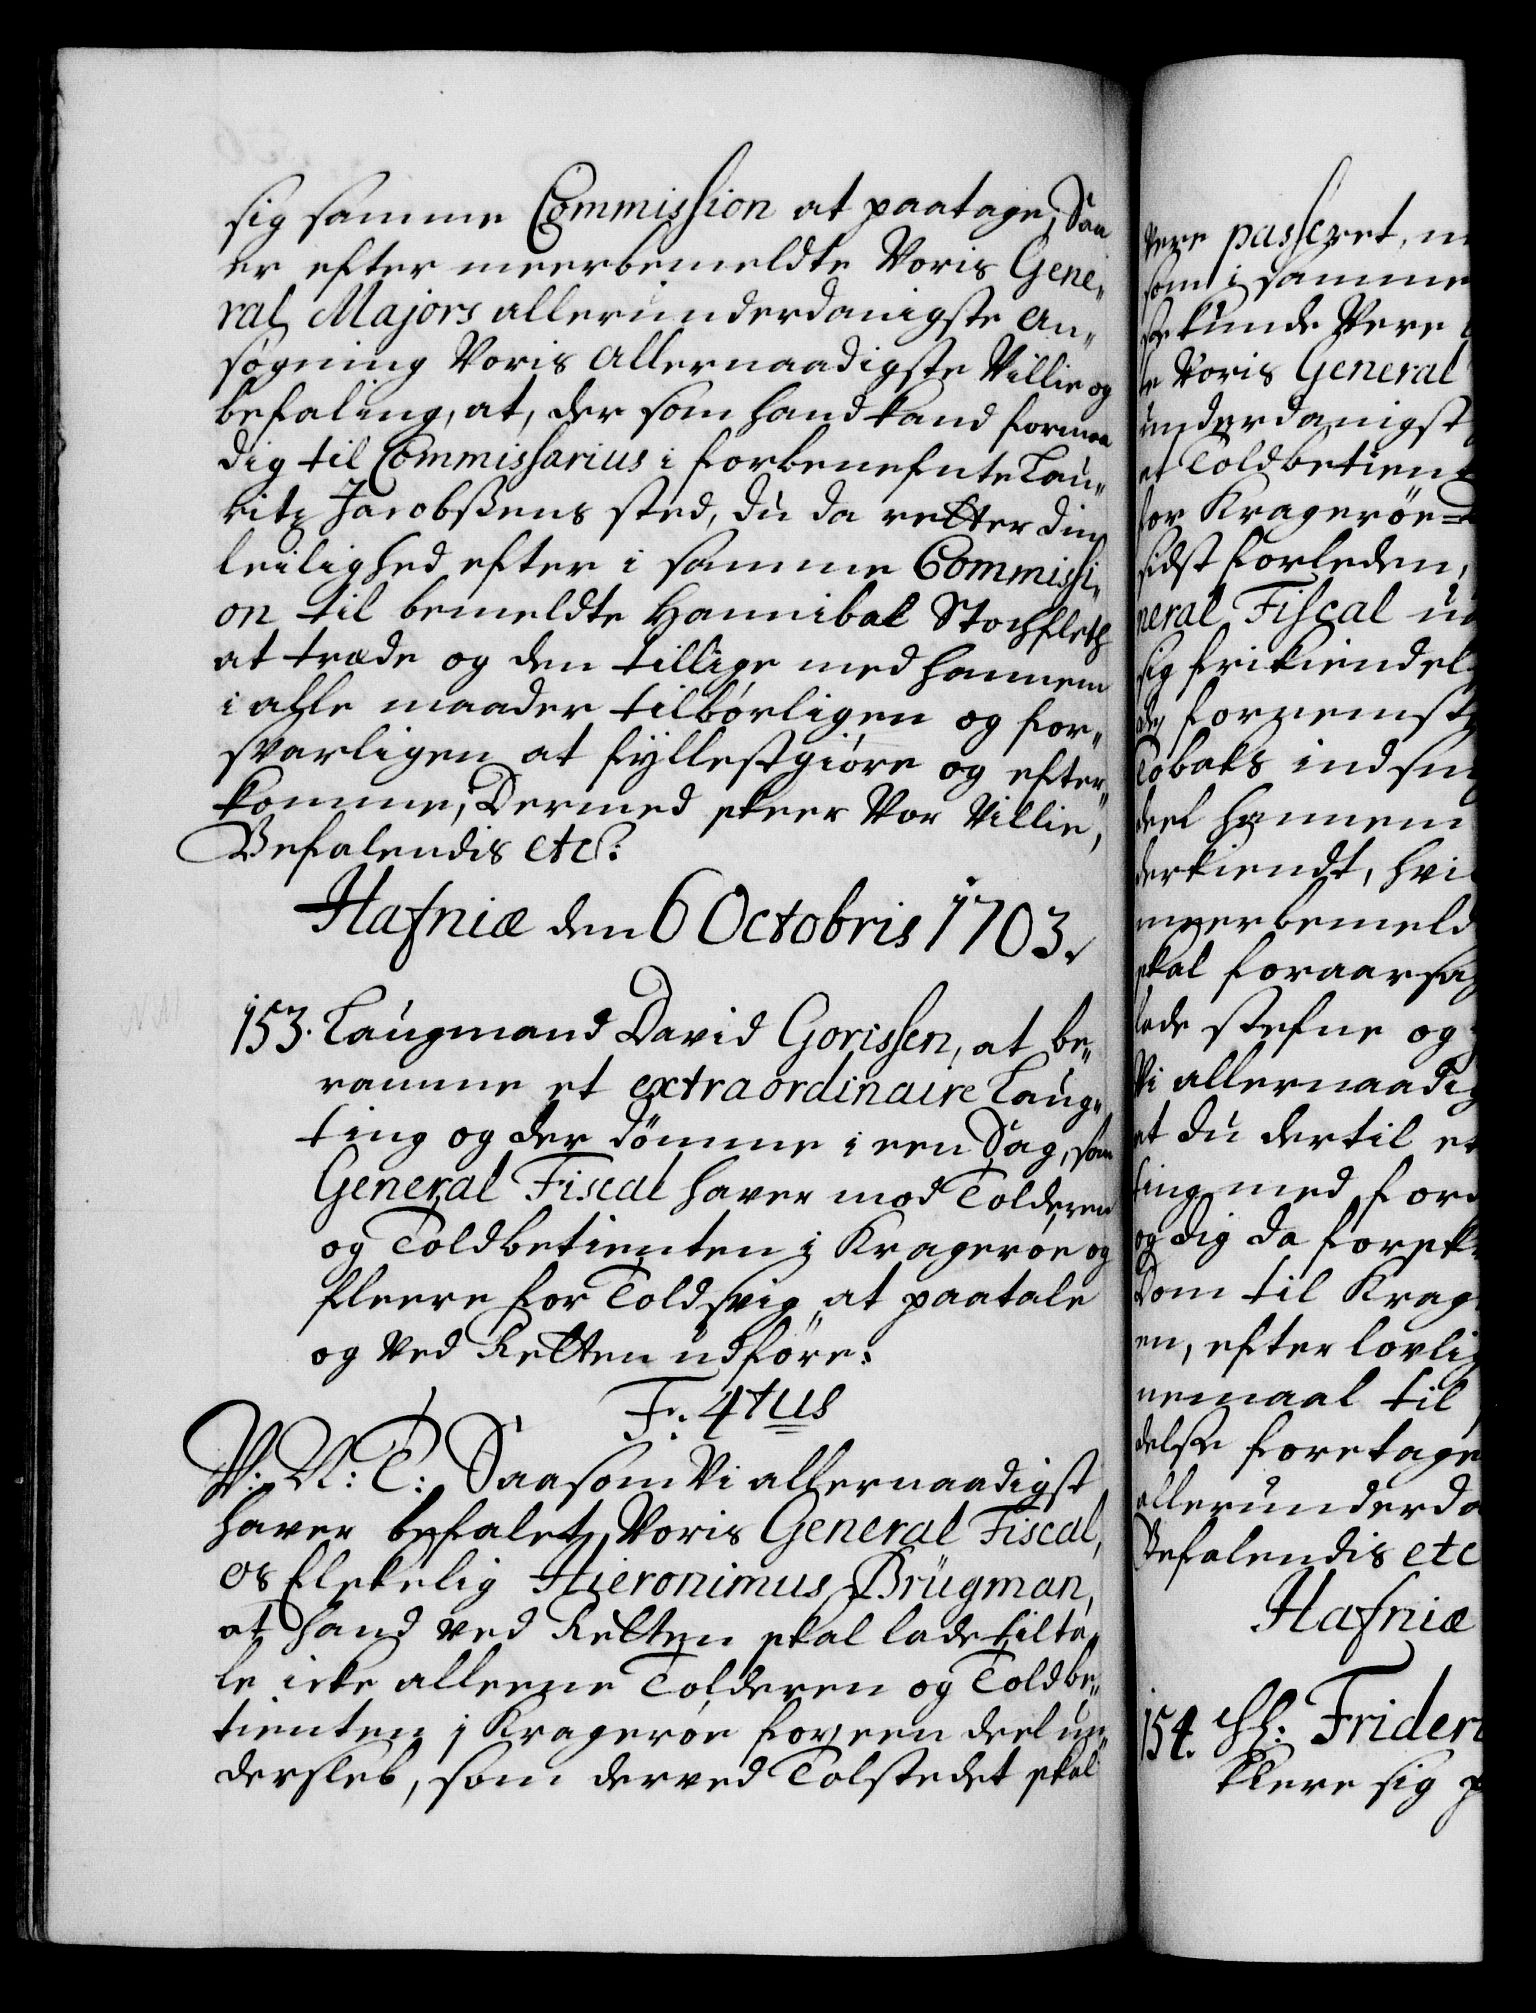 sig samme Commission at paatage, Saa
er efter meerbemeldte Voris Gene„
ral Majors allerunderdanigste an„
søgning Voris allernaadigste Villie og
befaling, at, der som hand kand formaa
dig til Commissarius i forbenefnte Lau„
ritz Jacobsens sted, du da retter din
leilighed efter i samme Commissi„
on til bemeldte Hannibal Stochfleth
at træde og den tillige med hannem
i alle maader tilbørligen og for„
svarligen at fyllestgiøre og efter„
komme, Dermed skeer Vor Villie,
Befalendis etc:
Hafniæ den 6 Octobris 1703.
153. Laugmand David Gorissen, at be„
ramme et extraordinaire Laug„
ting og der dömme i een Sag, som
General Fiscal haver mod Tolderen
og Toldbetienten i Kragerøe og
fleere for Toldsvig at paatale
og ved Retten udføre.
Fr. 4tus
V: A: T: Saasom Vi allernaadigst
haver befalet Voris General Fiscal,
os Elskelig Hieronimus Brügman,
at hand ved Retten skal lade tilta„
le icke alleene Tolderen og Toldbe„
tienten i Kragerøe for een deel un„
dersleb, som derved Tolstedet skal
vere passeret,
som i samme
kunde Vere
Voris General
underdanigst
at Toldbetient
for Kragerøe
sidst forleden,
neral Fiscal
sig frikiendel
fornemste
Tobaks indsn
deel hannem
derkiendt, hvi
meerbemeld
skal foraarsag
lade stefne og
Vi allernaadig
at du dertil et
ting med for
og dig da forek
Dom til Krag
en, efter lovlig
nemaal til
delse foretage
allerunderda
Befalendis etc
Hafniæ
154. Hr: Frider
klere sig